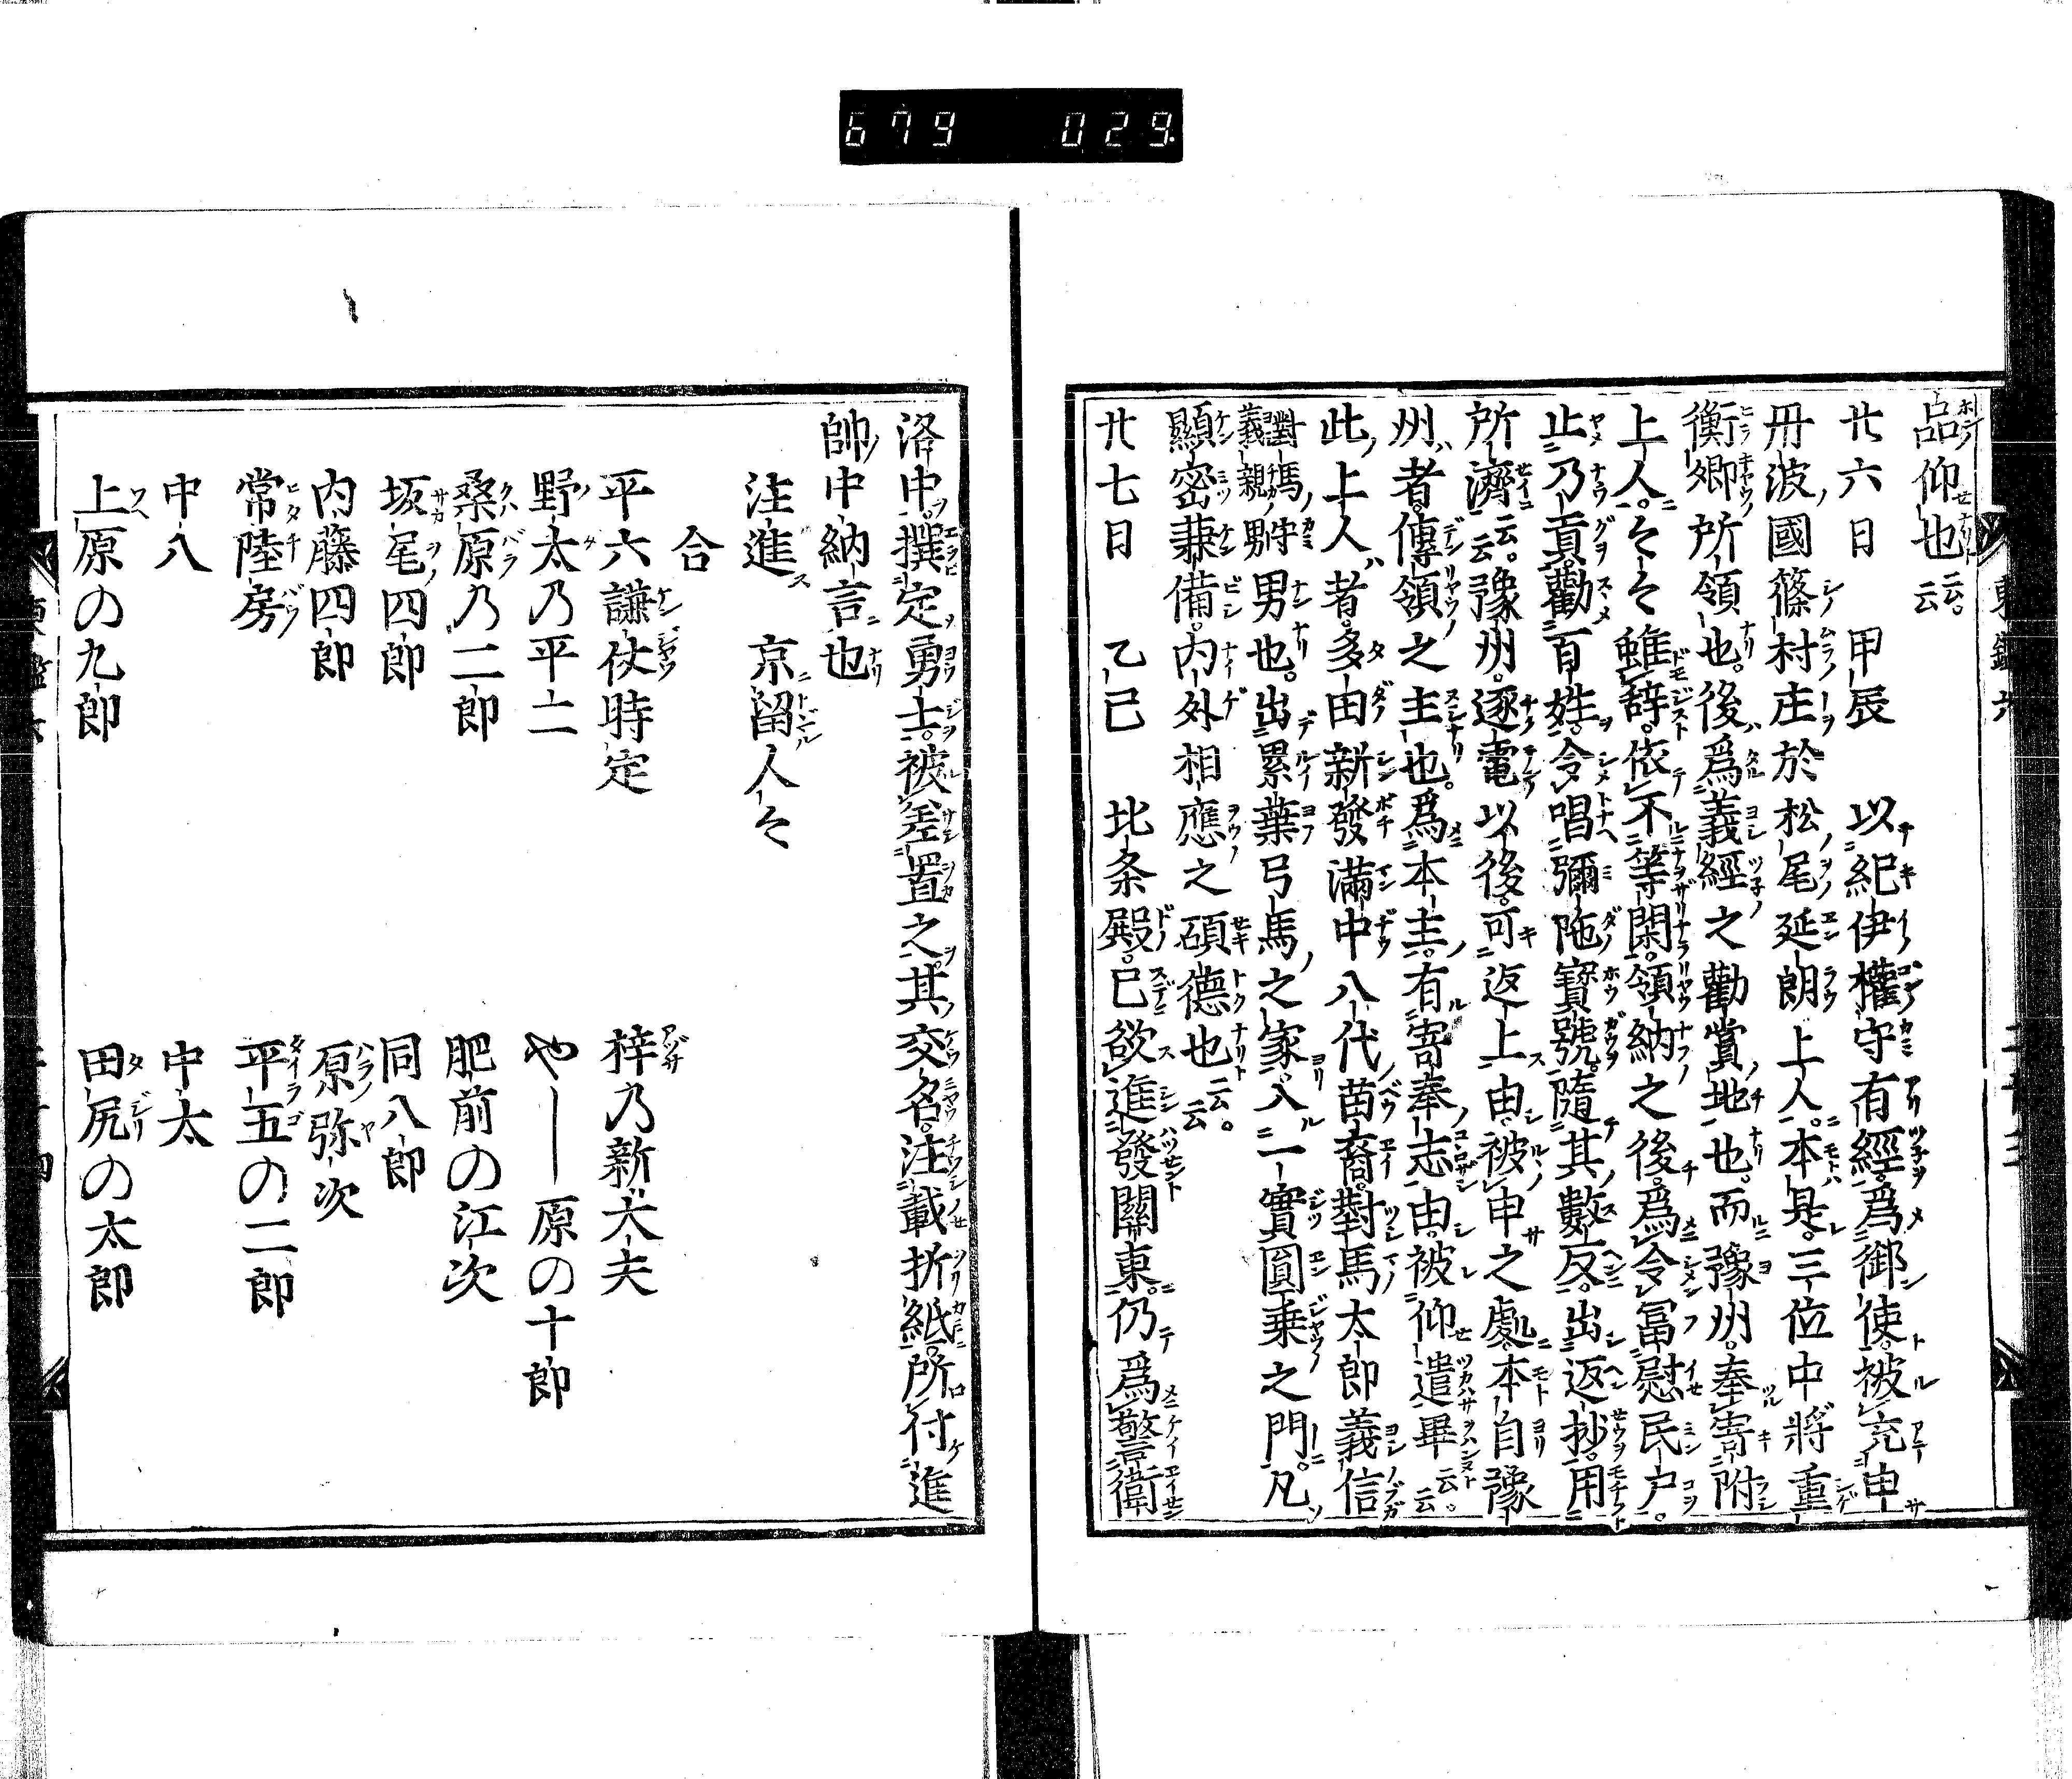 679 029
品仰也云云。
廿六日 甲辰 以紀伊權守有經。爲御使。被充申
丹波國篠村庄於松尾延朗上人。本是。三位中將重
衡卿所領也。後爲義經之勸賞地也。而豫州。奉寄附
上人。々々雖辞。依不等閑。領納之後。爲令冨慰民戸。
止乃貢。勸百姓。令唱彌陁寳號。隨其數反。出返抄。用
所濟云云。豫州。逐電以後。可返上由。被申之處。本自豫
州者。傳領之主也。爲本主。有寄奉志由。被仰遣畢云云。
此上人者。多田新發滿中八代苗裔。對馬太郎義信
對馬守義親男男也。出累葉弓馬之家。入一實圓乗之門。凡
顯密兼備。内外相應之碩德也云云。
廿七日 乙巳 北条殿。已欲進發關東。仍爲警衛
洛中。撰定勇士。被差置之。其交名。注載折紙。所付進
帥中納言也
注進 京留人々
合
平六謙仗時定 梓乃新大夫
野太乃平二 やー原の十郎
桑原乃二郎 肥前の江次
坂尾四郎 同八郎
内藤四郎 原弥次
常陸房 平五の二郎
中八 中太
上原の九郎 田尻の太郎